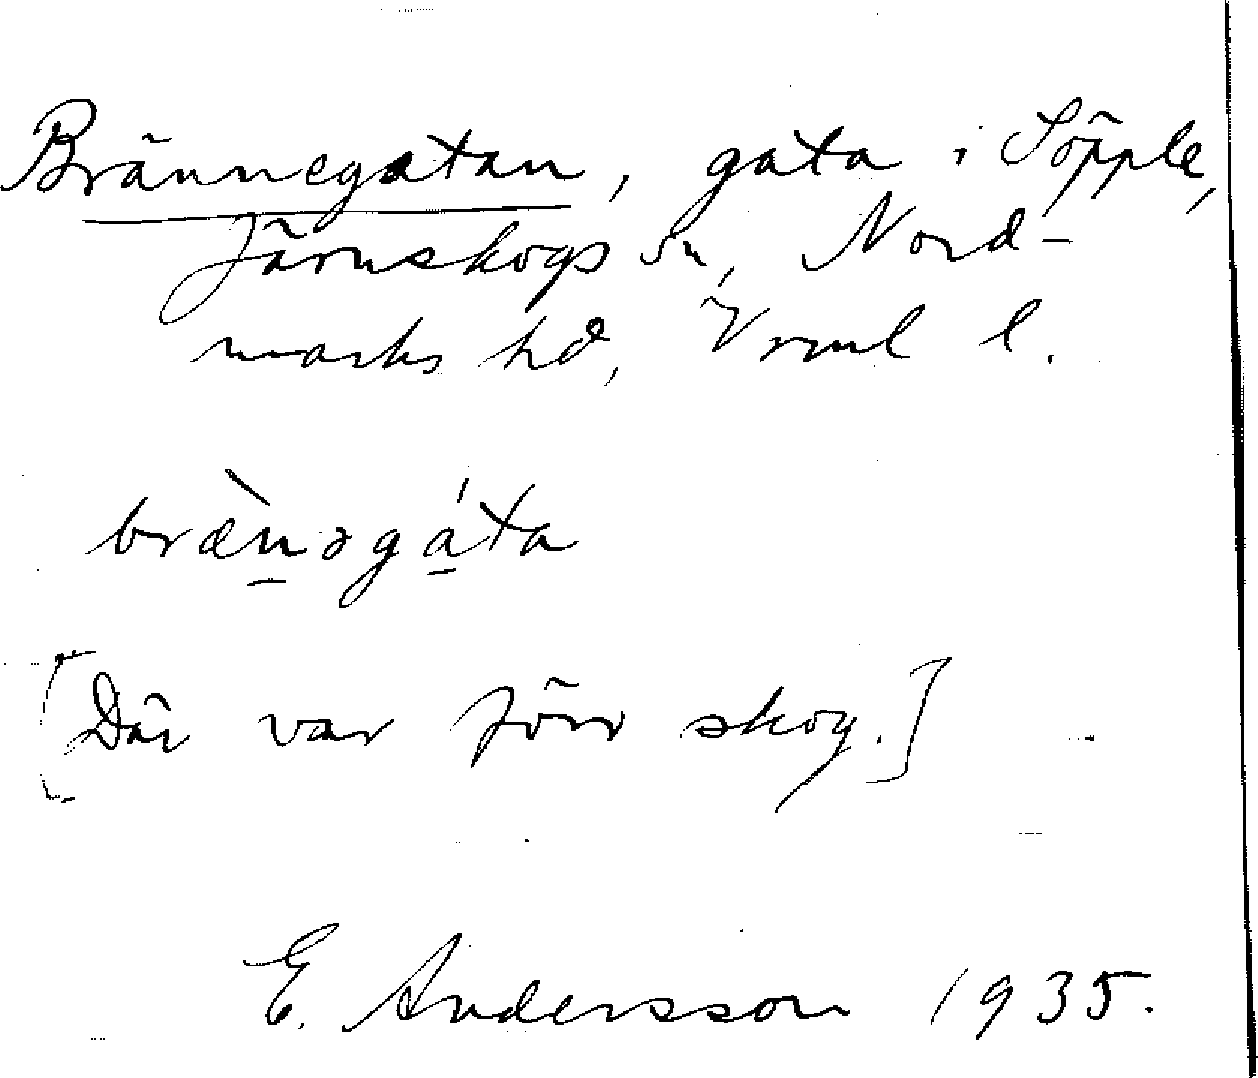 Brännegatan, gata i Söpple,
Järnskogs sn, Nord-
marks hd, Vrml l.
bræ̀n̲əgá̲ta
[Där var förr skog.]
E. Andersson 1935.